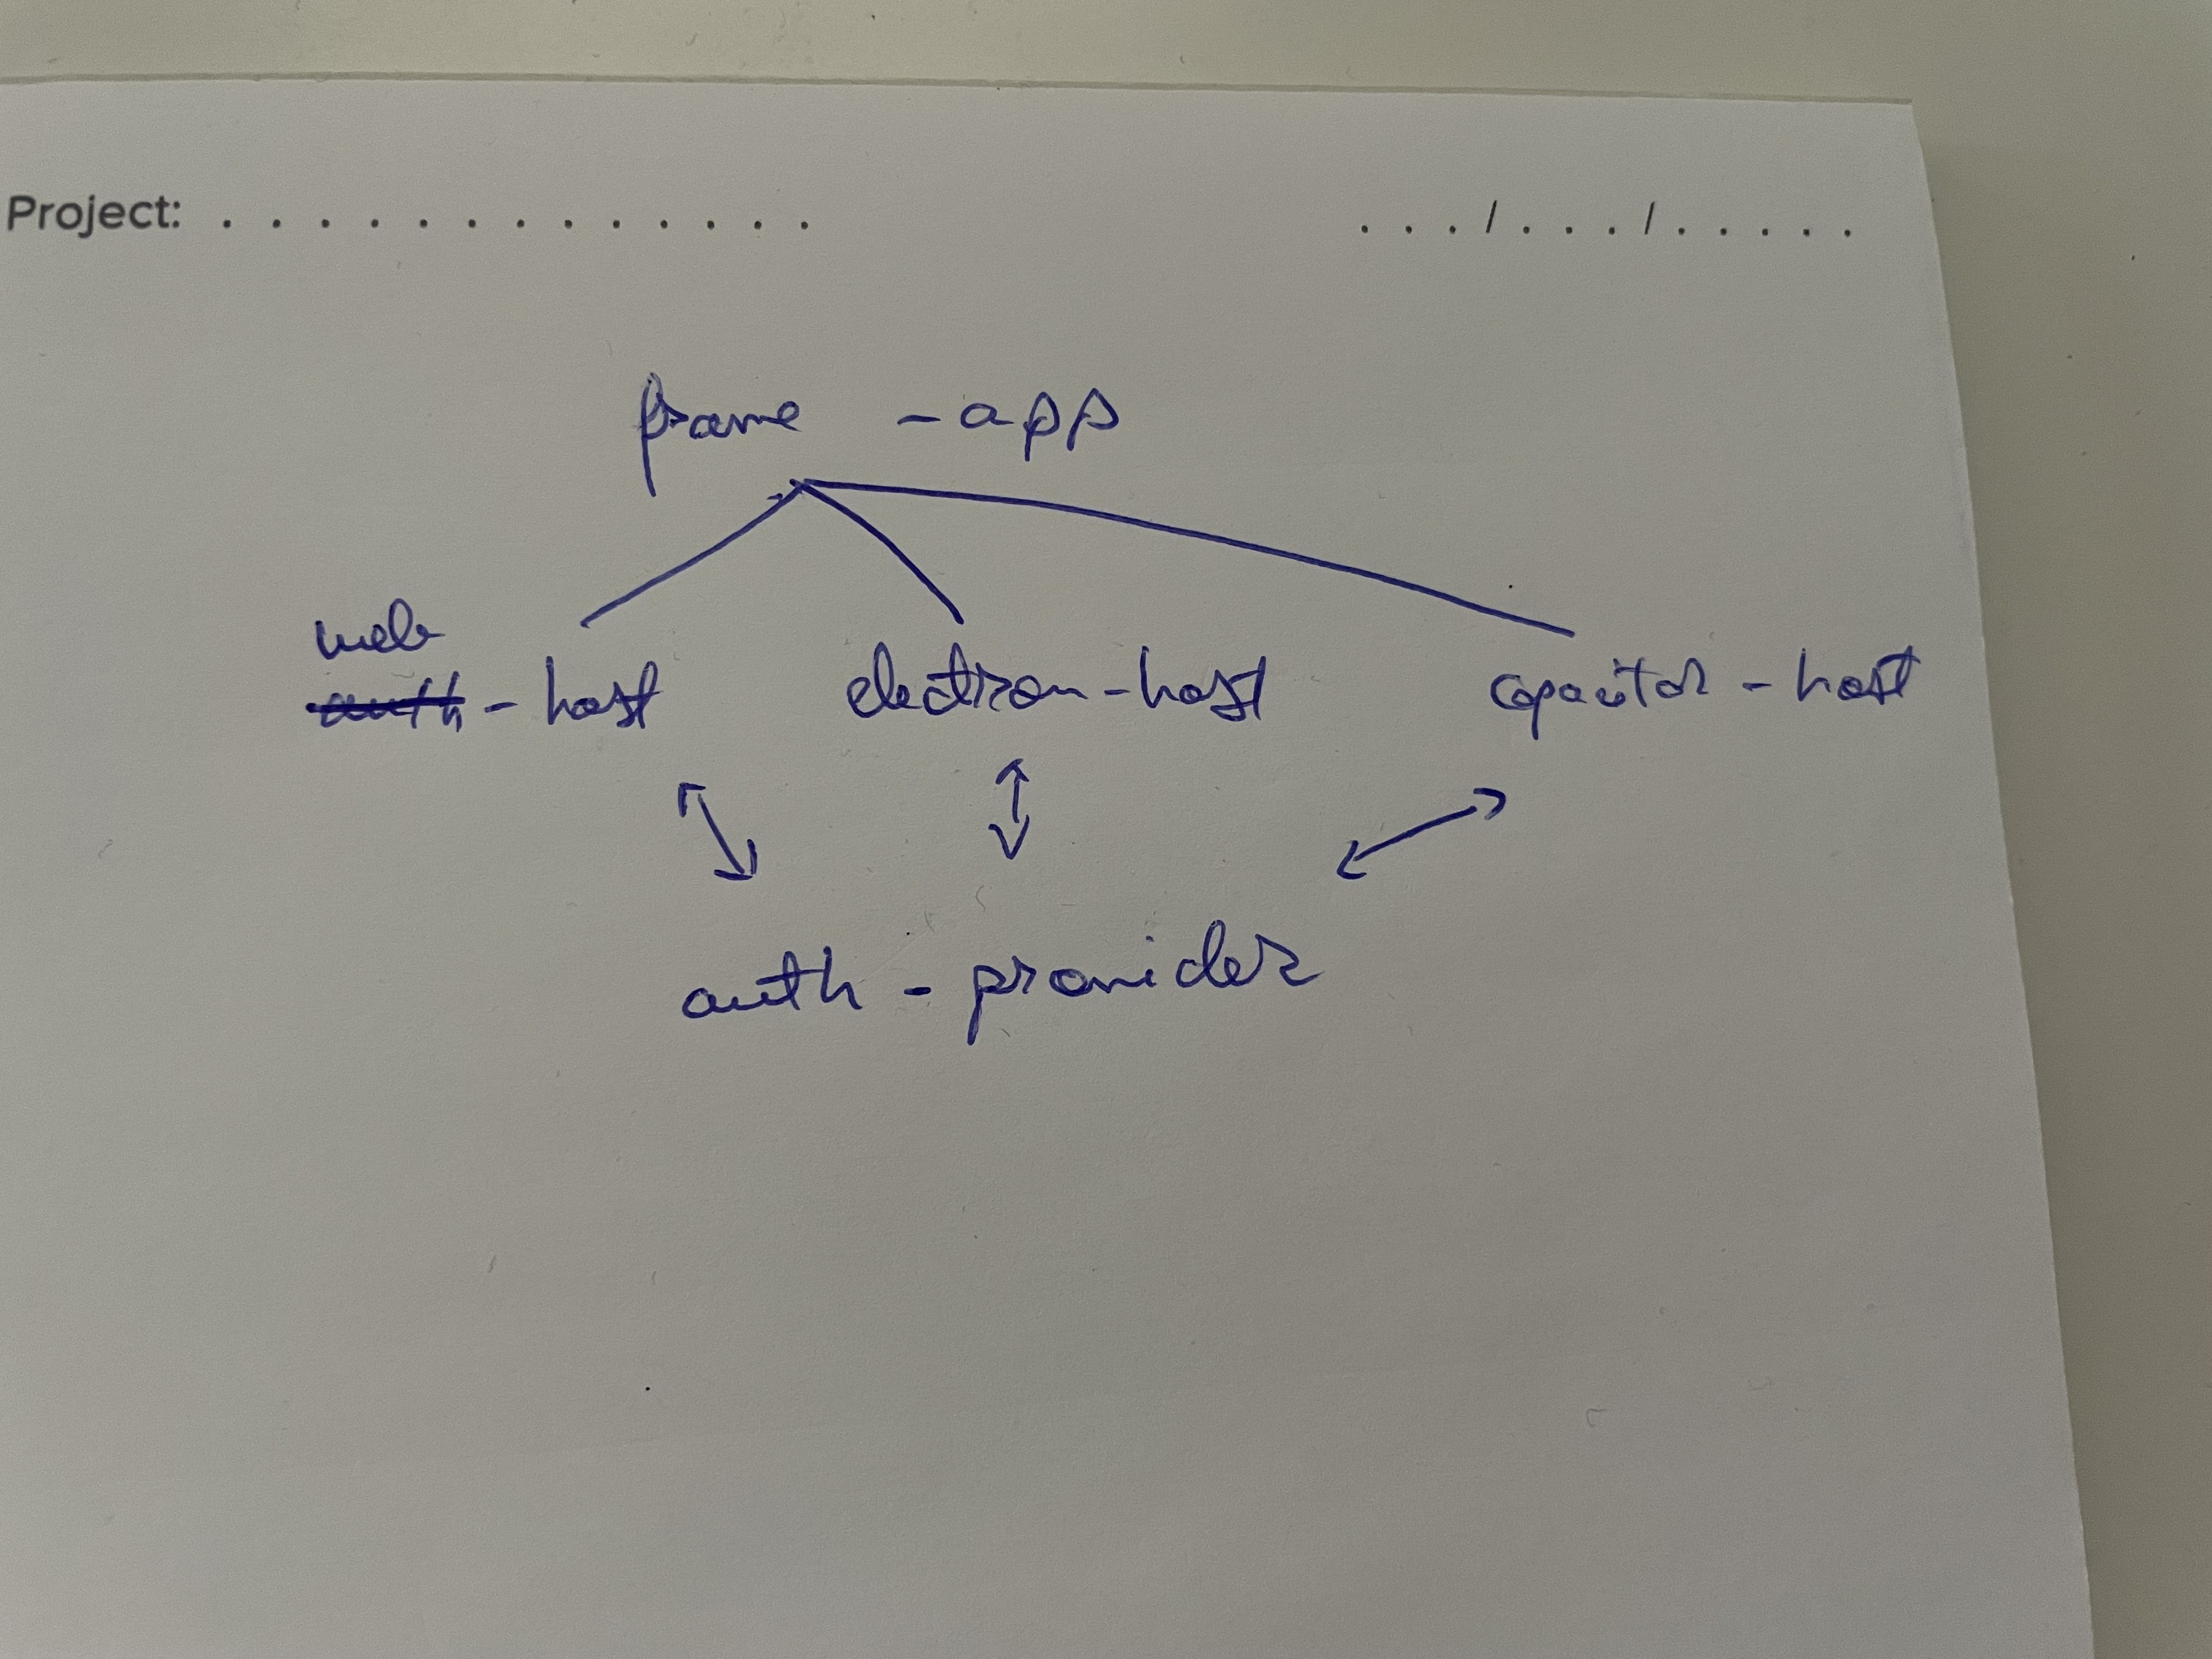 Project: . . . . . . . . . . . . . .../.../.....
frame - app
web
auth - host electron - host capacitor - host
auth - provider